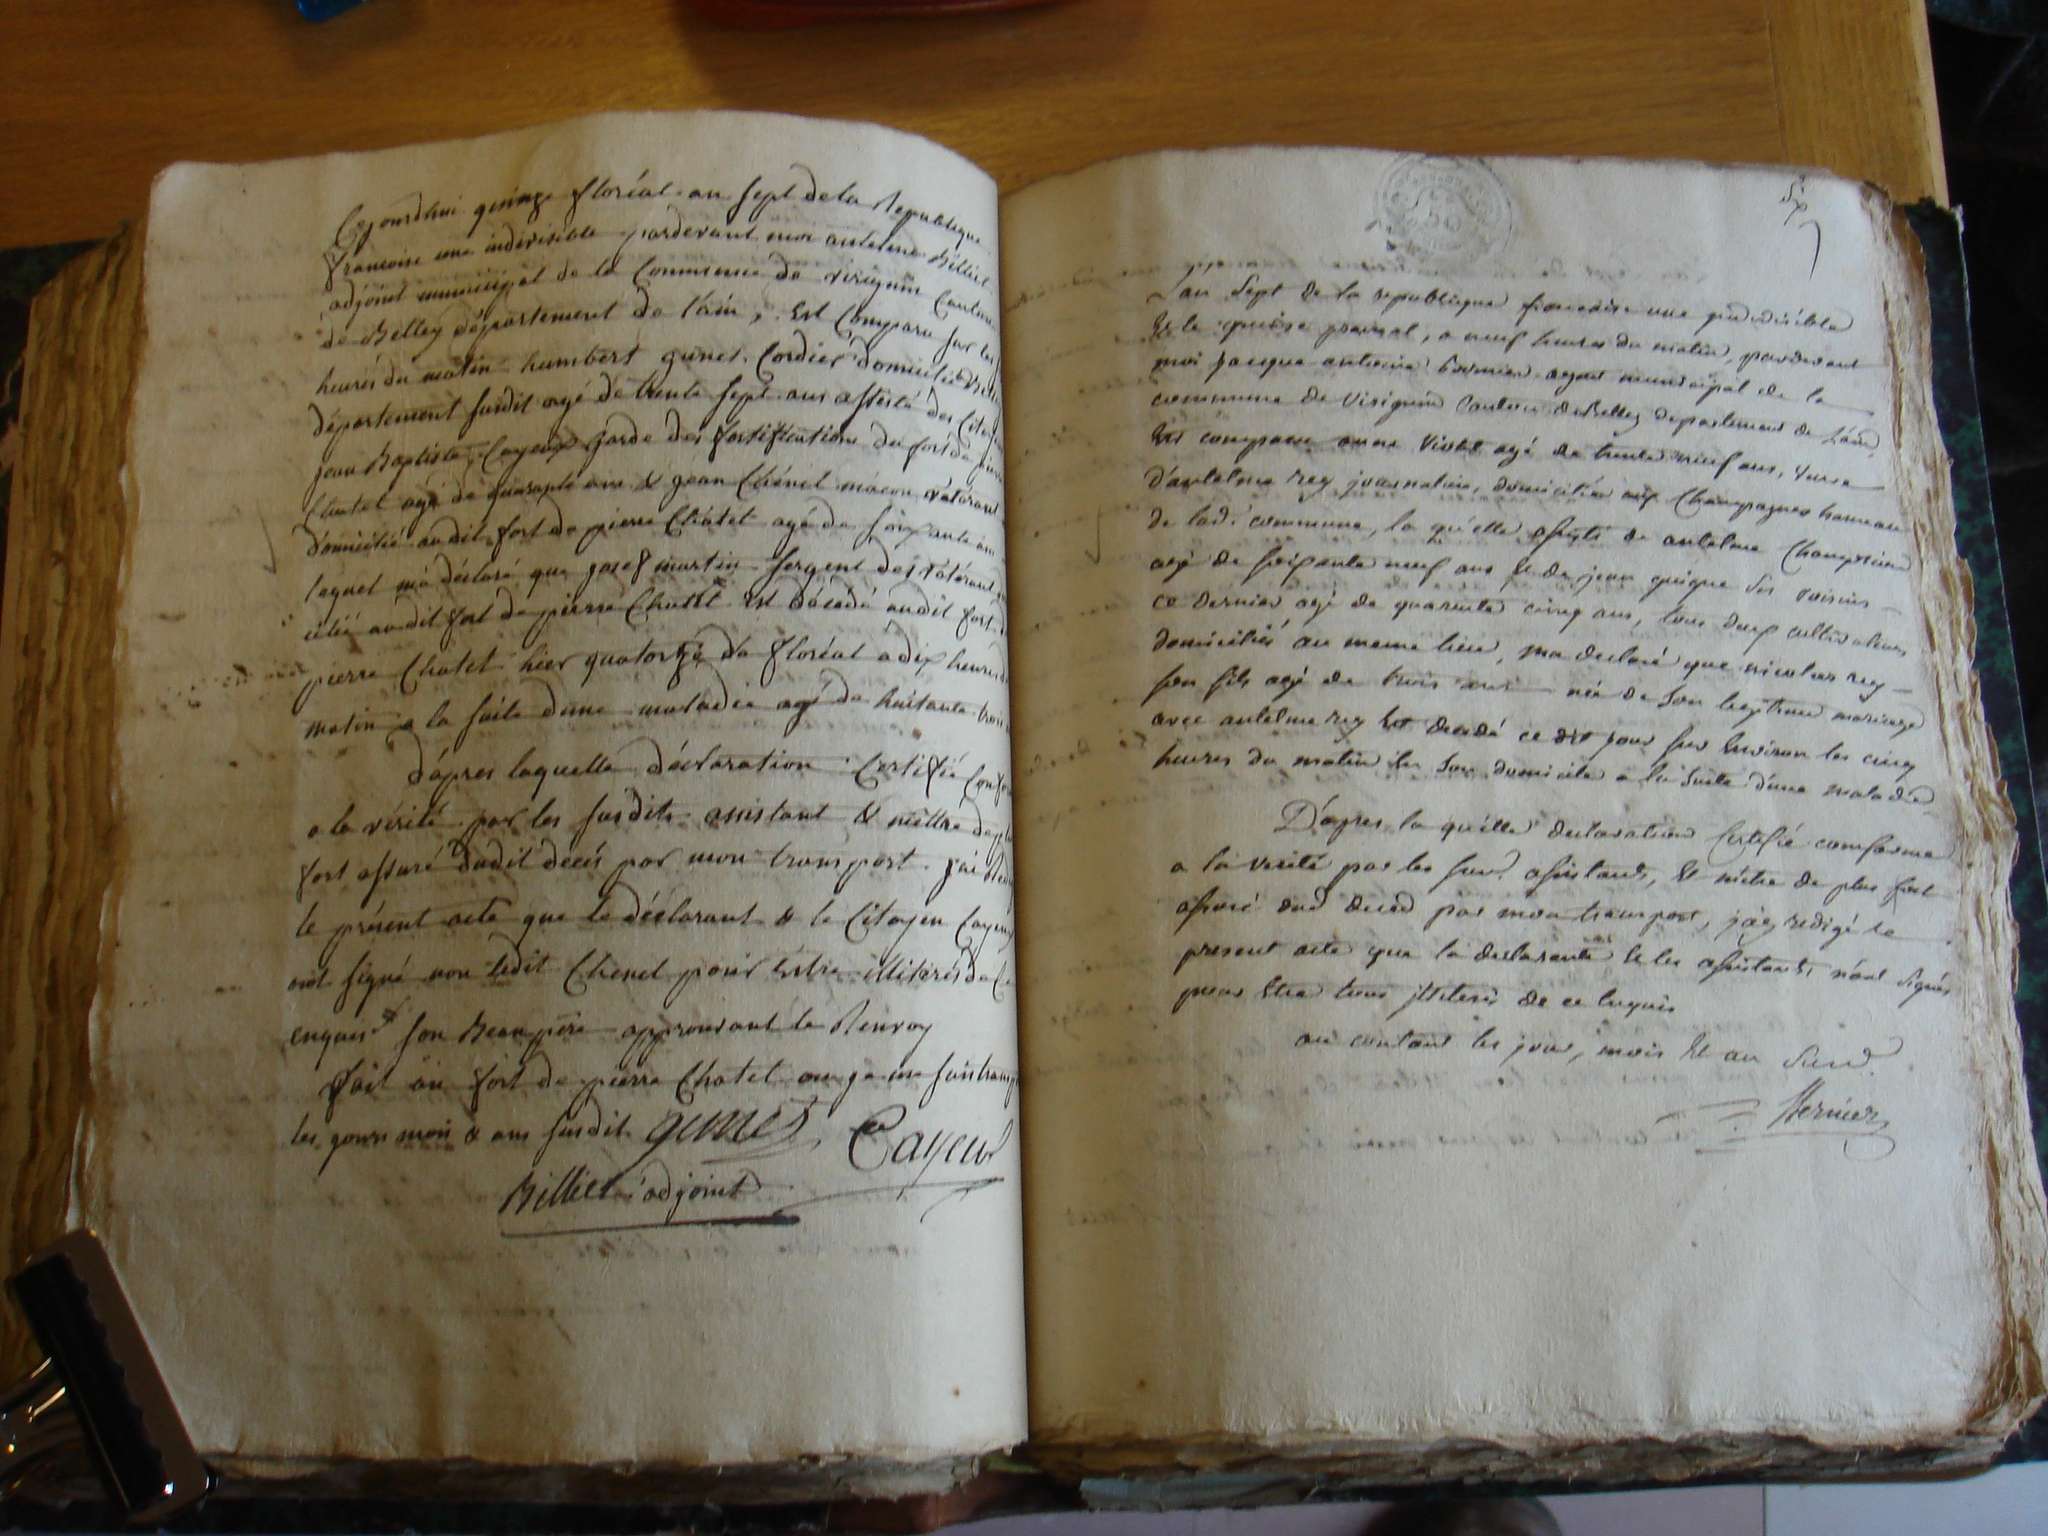 Cejourdhui quinze floréal an sept de la Republique
françoise une indivisible pardevant moi antelme Billiet
adjoint municipal de la Commune de virignin Canton
de Belley département de l'ain, Est Comparu sur les
heures du matin humbert gunet Cordier domicilié
département susdit agé de trente sept ans assisté des Citoy
jean Baptiste Cayeux garde des fortifications du fort de pierre
Chatel agé de quarante ans & jean Chenel macon vétérant
domicilié audit fort de pierre Chatel agé de soixante ans
lequel m'a déclaré que josef martin sergent des vétérans
cilié audit fort de pierre Chatel est décédé audit fort
pierre Chatel hier quatorze de floréal a dix heures du
matin a la suite d'une maladie agé de huitante trois
d'apres laquelle déclaration Certifié Confor
a la vérité par les susdits assistant & m'ettre de plus
fort assuré dudit decés par mon transport j'ai
le présent acte que le déclarant & le Citoyen Cayeux
ont signé non ledit Chenel pour Estre illitérés de ce
enquis son Beau pere approuvant le Renvoy
fait au fort de pierre Chatel ou je me suis transp
les jours mois & ans susdit gunet Cayeux
Billiet adjoint
L'an sept de la republique francaise une indivisible
Et le quinze prairial, a neuf heures du matin, pardevant
moi jacque antoine agent municipal de la
commune de virignin Canton de Belley departement de L'ain
Est comparu anne Violet agé de trente neuf ans, veuve
d'antelme rey journalier, domicilié aux Champagnes hameau
de lad. commune, la qu'elle assisté de antelme
agé de soixante neuf ans Et de jean guigue ses voisins
ce dernier agé de quarante cinq ans, tous deux cultivateurs
domiciliés au meme lieu, m'a declaré que nicolas rey
son fils agé de trois ans né de son legitime mariage
avec antelme rey Est decedé ce dit jour sur Environ les cinq
heures du matin En son domicile a la suite d'une maladie
D'apres la qu'elle declaration Certifié conforme
a la verité par les susd. assistants, Et m'etre de plus fort
assuré dud. deces par mon transport, j'ai redigé le
present acte que la declarante Et les assistants n'ont signés
pour Etre tous illiterés de ce enquis
au contant les jour, mois Et an susd.